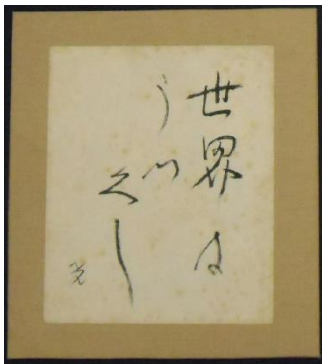 世界は
うつ
くし
光